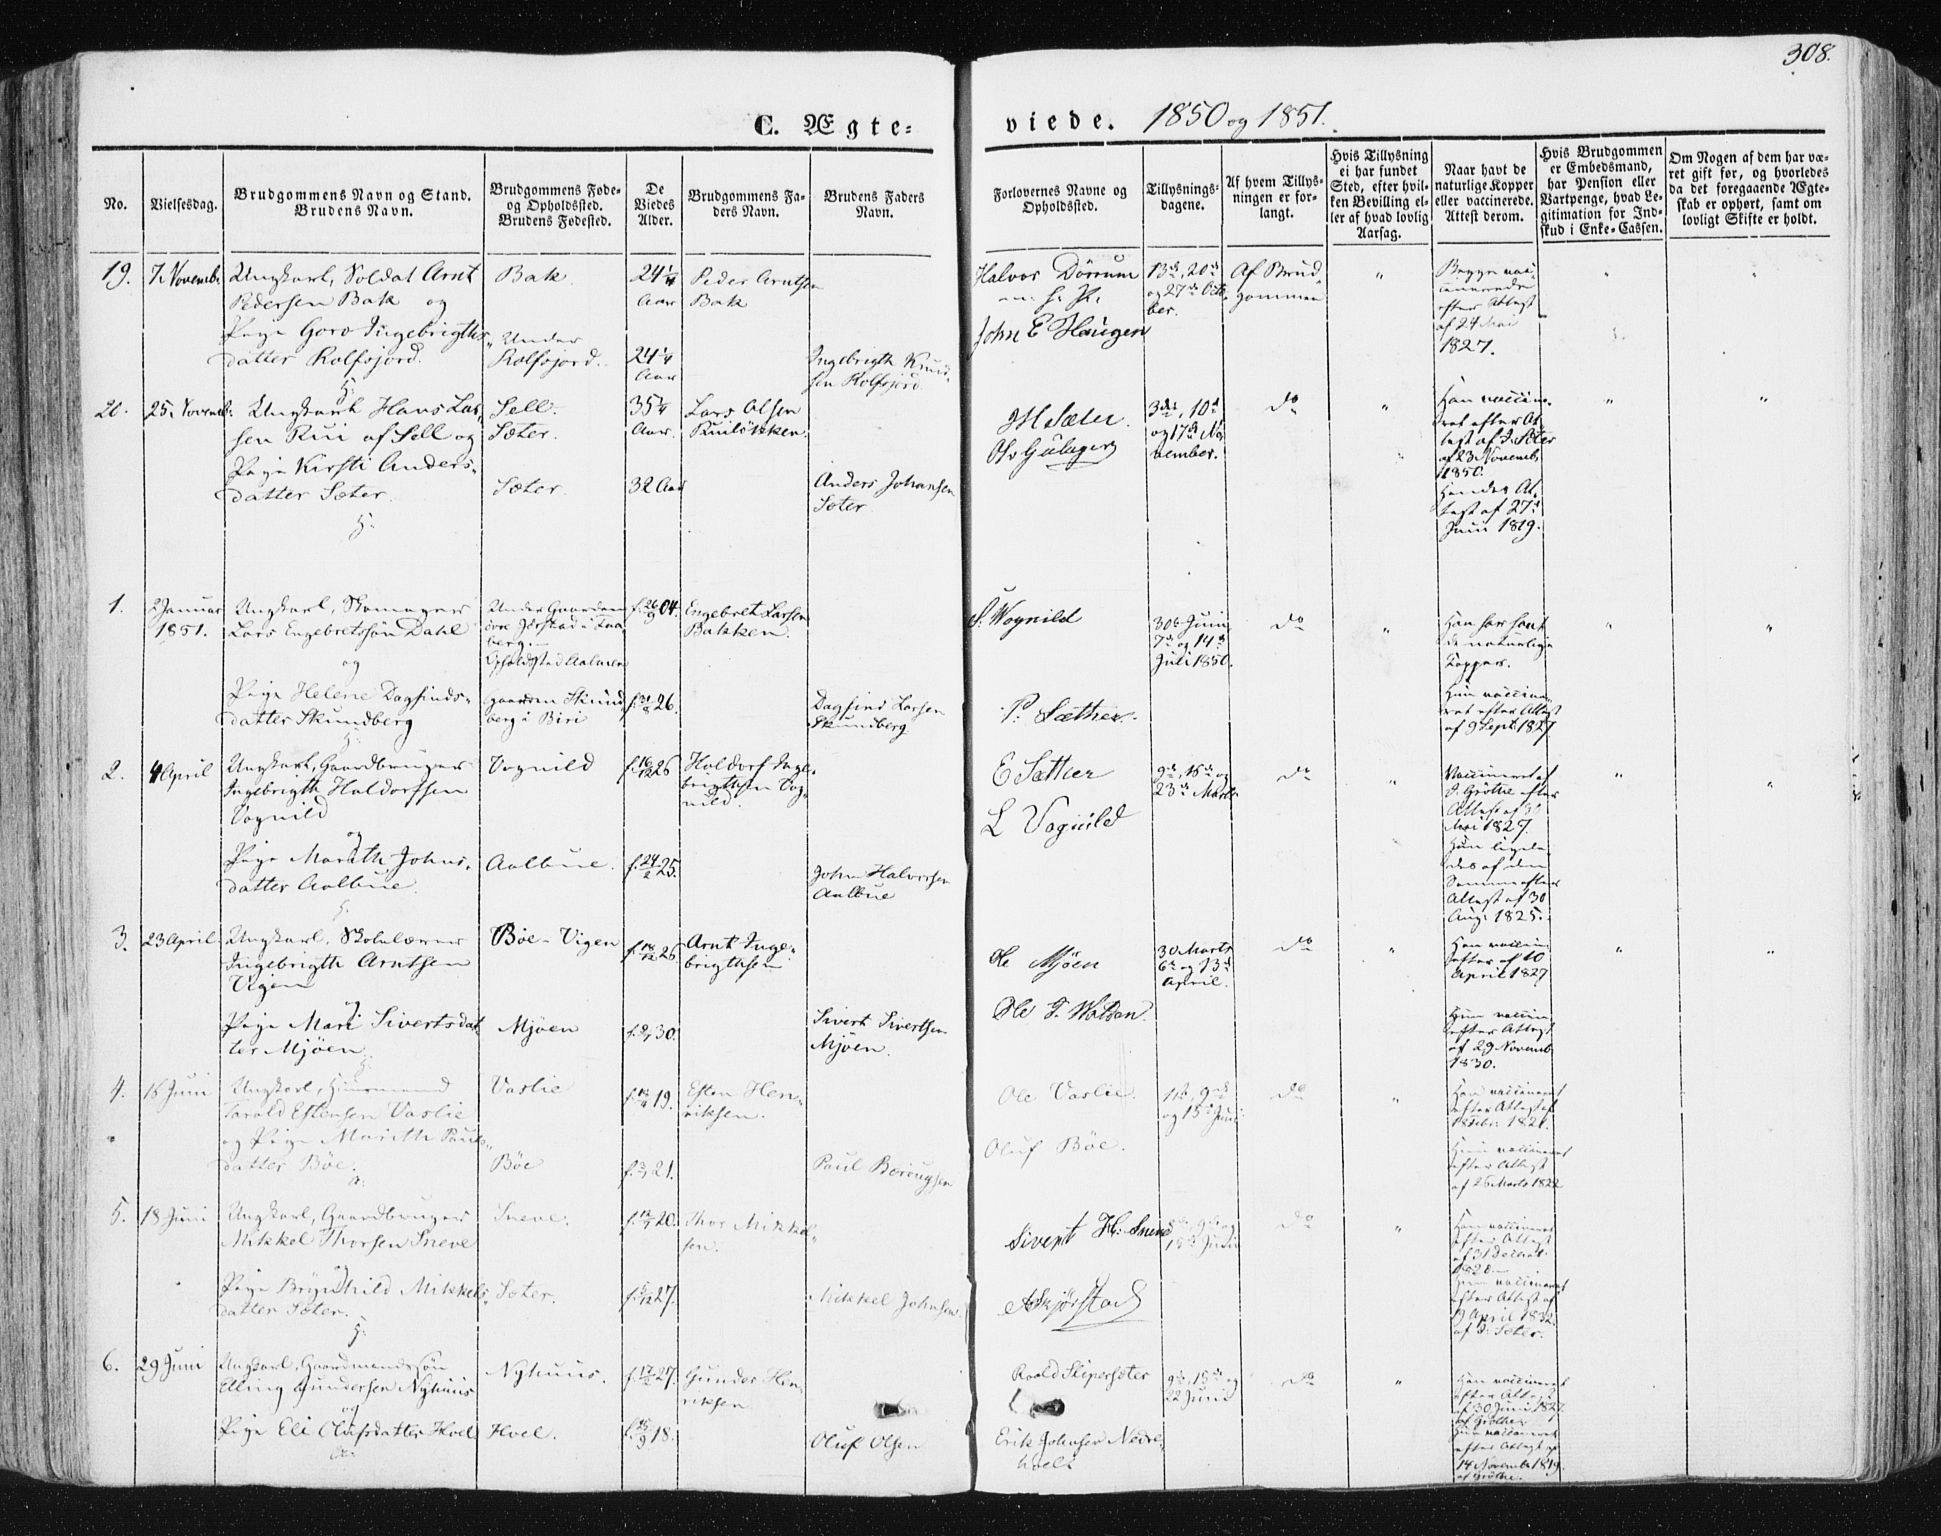 308.
C. Ægte=
viede. 1850 og 1851.
No.
Vielsesdag.
Brudgommens Navn og Stand.
Brudens Navn.
Brudgommens Føde=
og Opholdssted.
Brudens Fødested.
De
Viedes
Alder.
Brudgommens Fa=
ders Navn.
Brudens Faders
Navn.
Forlovernes Navne og
Opholdssted.
Tillysnings=
dagene.
Af hvem Tillys=
ningen er for=
langt.
Hvis Tillysning
ei har fundet
Sted, efter hvil=
ken Bevilling el=
ler af hvad lovlig
Aarsag.
Naar havt de
naturlige Kopper
eller vaccinerede.
Attest derom.
Hvis Brudgommen
er Embedsmand,
har Pension eller
Vartpenge, hvad Le=
gitimation for Ind=
skud i Enke=Cassen.
Om Nogen af dem har væ=
ret gift før, og hvorledes
da det foregaaende Ægte=
skab er ophørt, samt om
lovligt Skifte er holdt.
19.
7 Novemb:
Ungkarl, Soldat Arnt
Pedersen Bak og
Pige Goro Ingebrigths=
datter Rolfsjord.
Bak
Under
Rolfsjord.
24 1/4
Aar
24 1/4
Aar
Peder Arntsen
Bak
Ingebrigth Knud=
sen Rolfsjord.
Halvor Dörrum
John E Haugen
13de, 20de
og 27de Octo
ber.
Af Brud
gommen
Begge vac=
cinerede
efter Attest
af 24 Mai
1827.
20.
25 Novemb:
Ungkarl Hans Lar=
sen Rui af Sell og
Pige Kirsti Anders=
datter Sæter.
Sell.
Sæter.
Sæter.
35 1/4
Aar.
32 Aar
Lars Olsen
Ruilökken.
Anders Johansen
Sæter
JH Sæter.
3die, 10de
og 17de No
vember.
do
Han vaccine=
ret efter At=
test af J. Sæter
af 23 Novemb.
1850.
Hendes At=
test af 27de
Juni 1819.
1.
2 Januar
1851.
Ungkarl, Skomager
Lars Engebretssön Dahl
og
Pige Helene Dagfinds=
datter Skundberg
Under Gaarden
övre Jörstad i Faa
berg.
Gaarden Skund
berg i Biri
f. 26/9 04.
26.
Engebret Larsen
Bakken.
Dagfind Larsen
Skundberg
S. Wognild
P. Sæther.
30de Juni
7de og 14de
Juli 1850.
do
Han har havt
de naturlige
Kopper.
Hun vaccine=
ret efter Attest
af 9 Sept: 1827
2.
4 April
Ungkarl, Gaardbruger
Ingebrigth Haldorssen
Vognild
og
Pige Marith Johns=
datter Aalbue.
Vognild
Aalbue.
f. 16/12 26
f. 24/2 25.
Haldor Inge=
brigthsen Vog=
nild.
John Halvorsen
Aalbue
E Sæther
L Vognild
9de, 16de og
23de Marts
do
Vaccineret af
J. Gröthe efter
Attest af 31
Mai 1827.
Hun ligele=
des af den
Samme efter
Attest af 30
Aug: 1825.
3.
23 April
Ungkarl, Skolelærer
Ingebrigth Arntsen
Vigen
og
Pige Mari Sivertsdat
ter Mjöen
Böe-Vigen
Mjöen
f. 18/12 26
30.
Arnt Inge=
brigthsen
Sivert Sivertsen
Mjöen.
Ole Mjöen
30 Marts
6te og 13de
April.
do
Han vaccin.
efter af 10
April 1827
Hun vaccin.
efter Attest
af 29 Novemb:
1830.
4.
16 Juni
Ungkarl, Huusmand
Tarald Estensen Vaslie
og Pige Marith Pauls=
datter Böe.
Vaslie
Böe
19.
21.
Esten Hen=
riksen.
Paul
Ole Vaslie.
Oluf Böe.
1ste, 9de
og 15de Juni
do
Han vaccineret
efter Attest af
Hun vaccineret
efter Attest
af 26 Marts 1822
5.
18 Juni
Ungkarl, Gaardbruger
Mikkel Thorsen Sneve
og
Pige Brynhild Mikkels=
datter Sæter.
Sneve.
Sæter.
20.
27.
Thor Mikkel=
sen.
Mikkel Johnsen.
Sivert H. Sneve
do
Han vaccineret
efter Attest
Hun vaccineret
efter Attest af
9 April 1832.
af J. Sæter.
6.
29 Juni
Ungkarl, Gaardmandssön
Elling Gundersen Nyhuus
og
Pige Eli Olufsdatter Hoel
Nyhuus.
Hoel.
f. 17/2 27.
18.
Gunder Hen
riksen
Oluf Olsen
9de, 15de og
22 Juni
do
Erik Johnsen Nedre
hoel
Han vaccineret
efter Attest
af 30 Juni 1827
af Gröthe
Hun vaccineret
efter Attest af
14 Novemb 1819.
af Gröthe.